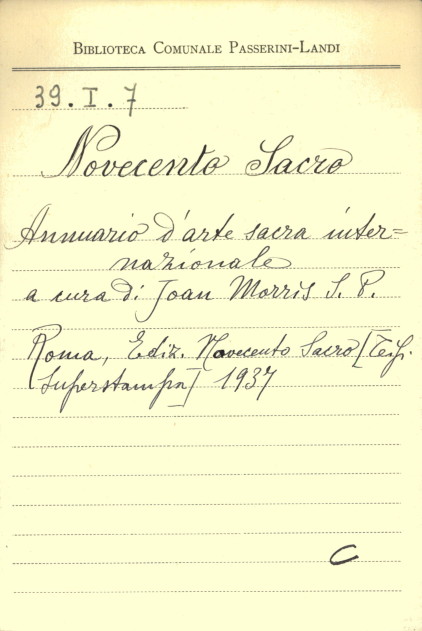 BIBLIOTECA COMUNALE PASSERINI-LANDI
39. I. 7
Novecento Sacro
Annuario d'arte sacra inter=
nazionale
a cura di Joan Morris S. P.
Roma, Ediz. Novecento Sacro [
Superstampa] 1937
C